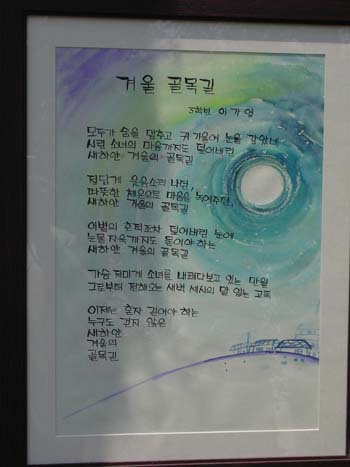 겨울 골목길
3학년 이가영
모두가 숨을 멈추고 귀 기울여 눈을 감았네
시린 소녀의 마음까지도 덮어버린
새하얀 겨울의 골목길
정답게 웃음소리 나던,
따뜻한 체온으로 마음을 녹여주던,
새하얀 겨울의 골목길
이별의 흔적조차 덮어버린 눈에
눈물 자욱까지도 묻어야 하는
새하얀 겨울의 골목길
가슴 저미게 소녀를 내려다보고 있는 마을
그로부터 전해오는 새벽 세시의 말 없는 고독
이제는 혼자 걸어야 하는
누구도 걷지 않은
새하얀
겨울의
골목길